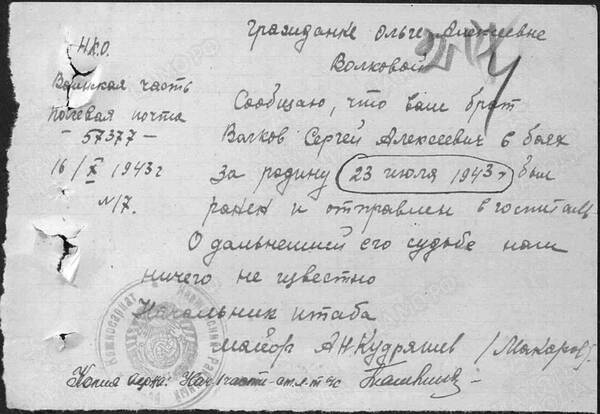 Гражданке Ольге Алексеевне
Волковой
Н.К.О.
Воинская часть
полевая почта
- 57377 -
16/X 1943 г
№17.
Сообщаю, что ваш брат
Волков Сергей Алексеевич в боях
за родину 23 июля 1943 г был
ранен и отправлен в госпиталь
О дальнейшей его судьбе нам
ничего не известно
Начальник штаба
майор Кудряшев /Макаров/.
Копия верна: Нач. 1 части